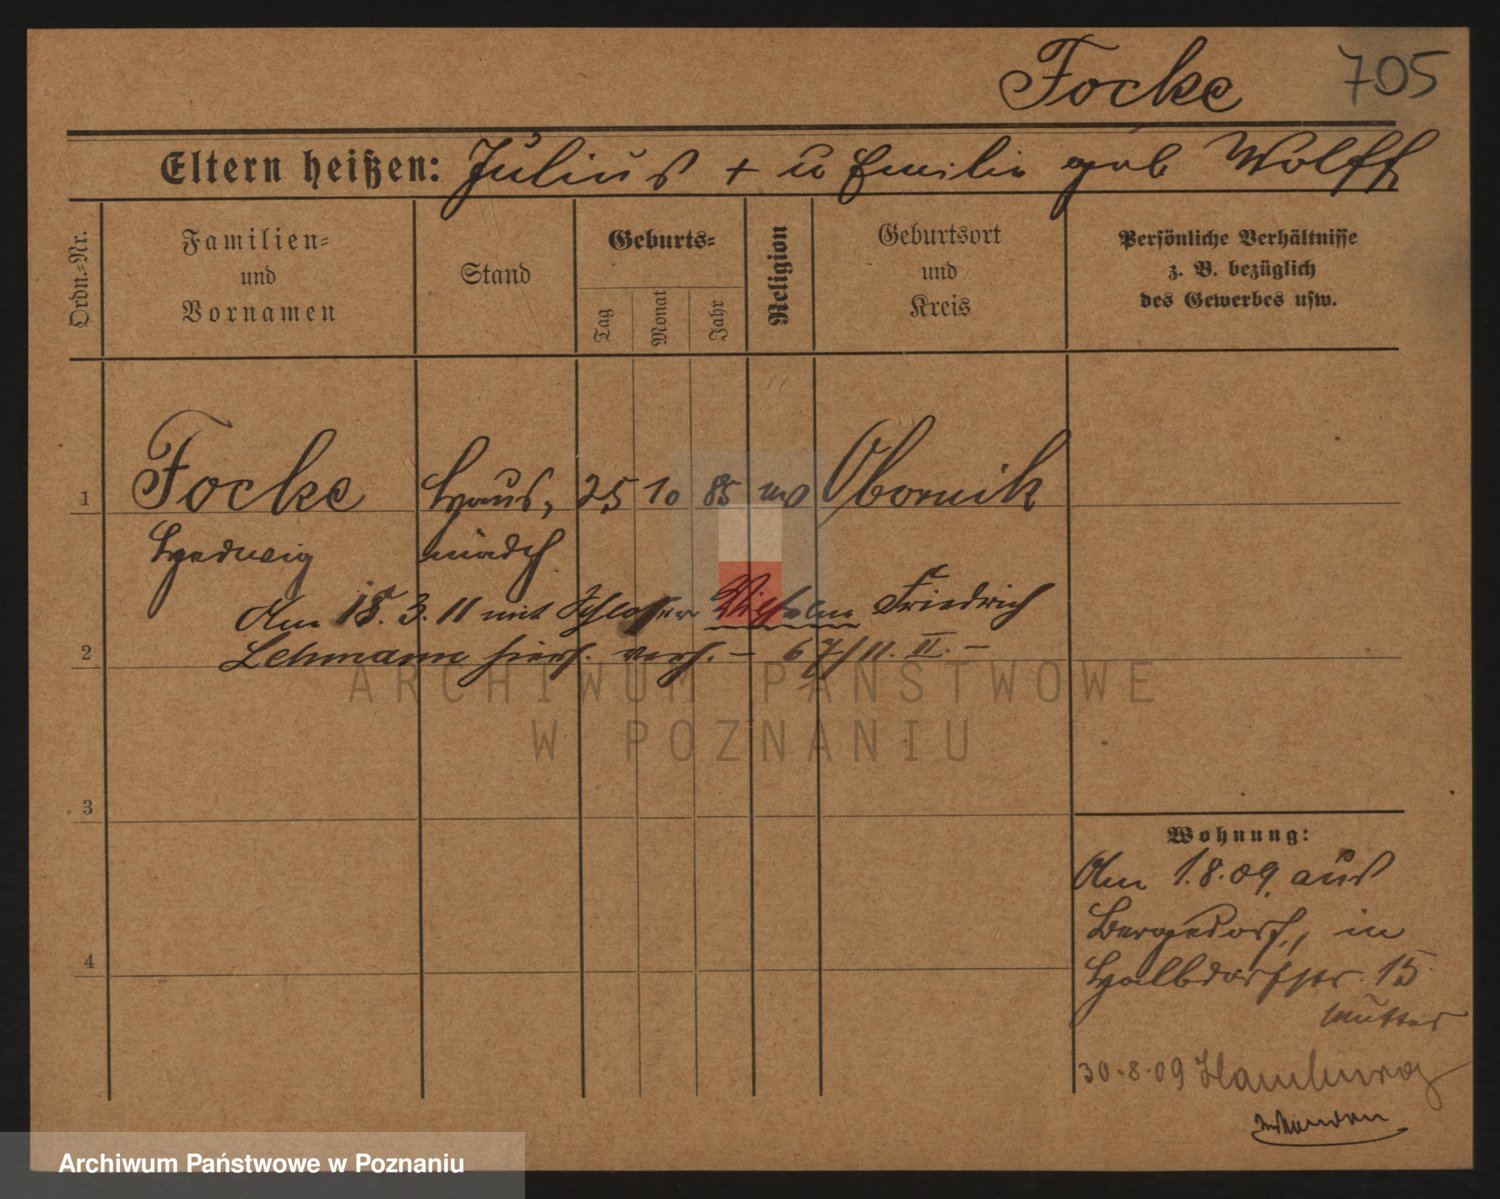 Focke 705
Eltern heißen: Julius + u Emilie geb Wolff
Ordn.-Nr.
Familien-
und
Vornamen
Stand
Geburts-
Tag
Monat
Jahr
Religion
Geburtsort
und
Kreis
Persönliche Verhältnisse
z. B. bezüglich
des Gewerbes usw.
1 Focke Haus, 25 10 85 ev Obornik
Hedwig mädch
Am 18. 3. 11 mit Schlosser Wilhelm Friedrich
2 Lehmann hier verh. – 67/11. II. –
ARCHIWUM PAŃSTWOWE
W POZNANIU
3
Wohnung:
Am 1.8.09. aus
Bergedorf, in
4 Halbdorfstr. 15
Mutter
30.8.09 Hamburg
Archiwum Państwowe w Poznaniu